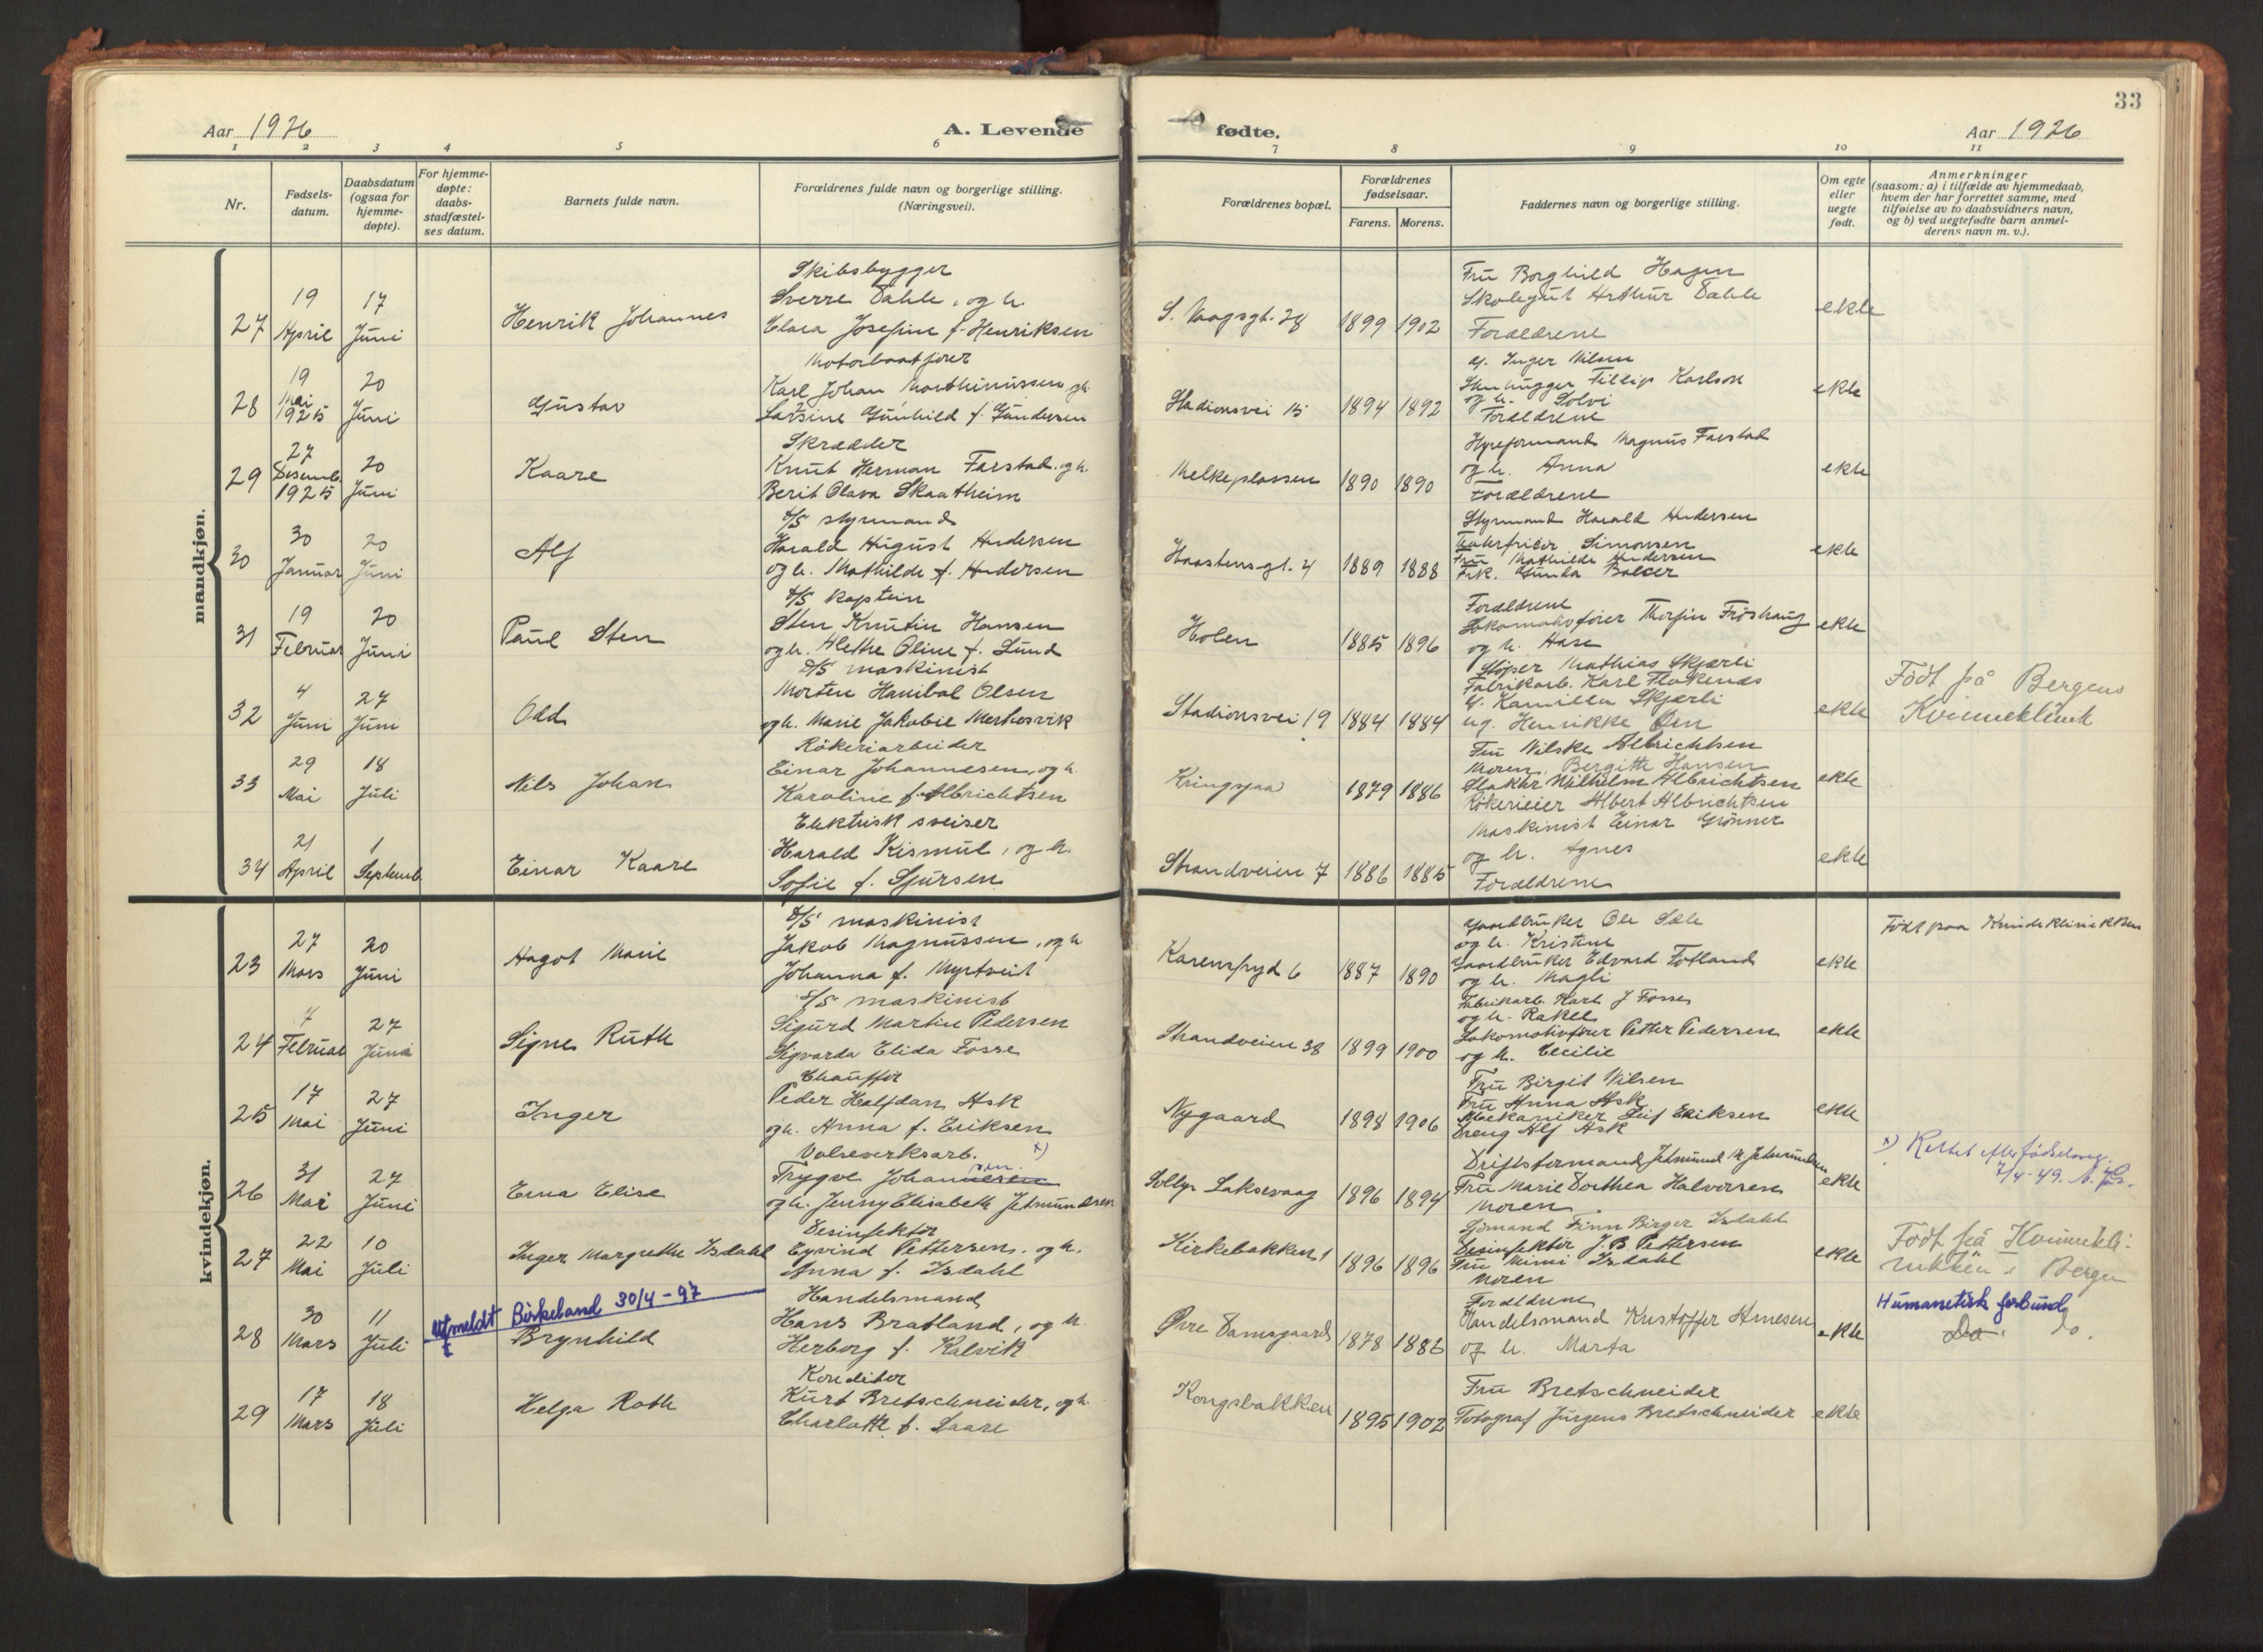 33
Aar 1926
A. Levende fødte.
Aar 1926
1 2 3 4 5 6 7 8 9 10 11
Nr.
Fødsels-
datum.
Daabsdatum
(ogsaa for
hjemme-
døpte).
For hjemme-
døpte:
daabs-
stadfæstel-
ses datum.
Barnets fulde navn.
Forældrenes fulde navn og borgerlige stilling.
(Næringsvei).
Forældrenes bopæl.
Forældrenes
fødselsaar.
Farens. Morens.
Faddernes navn og borgerlige stilling.
Om egte
eller
uegte
født.
Anmerkninger
(saasom: a) i tilfælde av hjemmedaab,
hvem der har forrettet samme, med
tilføielse av to daabsvidners navn,
og b) ved uegtefødte barn anmel-
derens navn m. v.).
mandkjøn.
27
19
April
17
Juni
Henrik Johannes
Skibsbygger
Sverre Dahle, og h.
Clara Josefine f. Henriksen
S. Vaagsgt. 28
1899 1902
Fru Borghild Hagen
Skolegut Arthur Dahle
Forældrene
ekte
28
19
Mai
1925
20
Juni
Gustav
Motorbaatfører
Karl Johan Marthinussen, og h.
Larsine Gunhild f. Gundersen
Stadionsvei 15
1894 1892
g. Inger Nilsen
Stenhugger Fillip Karlson
og h. Solvi
Forældrene
ekte
29
27
Desemb.
1925
20
Juni
Kaare
Skrædder
Knut Herman Farstad. og h.
Berit Olava Skaatheim
Melkeplassen
1890 1890
Hyreformand Magnus Farstad
og h. Anna
Forældrene
ekte
30
30
Januar
20
Juni
Alf
D/S styrmand
Harald August Andersen
og h. Mathilde f. Andersen
Haastensgt. 4
1889 1888
Styrmand Harald Andersen
Simonsen
Fru Mathilde Andersen
Frk. Gunda Balcer
ekte
31
19
Februar
20
Juni
Paul Sten
D/S kaptein
Sten Knutin Hansen
og h. Alethe Oline f. Lund
Holen
1885 1896
Forældrene
Lokomotivfører Thorfin Fröshaug
og h. Aase
ekte
32
4
Juni
27
Juni
Odd
D/S maskinist
Morten Hanibal Olsen
og h. Marie Jakobie Merkesvik
Stadionsvei 19
1884 1884
Støper Mathias Skjærli
Fabrikarb. Karl Flokenes
g. Kamilla Skjærli
ug. Henrikke Øen
ekte
Födt på Bergens
Kvinneklinik
33
29
Mai
18
Juli
Nils Johan
Rökeriarbeider
Einar Johannesen, og h.
Karoline f. Albrichtsen
Kringsjaa
1879 1886
Fru Nilske Albrichtsen
Moren, Bergitte Hansen
Slakter Wilhelm Albrichtsen
Rökerieier Albert Albrichtsen
ekte
34
21
April
1
Septemb.
Einar Kaare
Elektrisk sveiser
Harald Kismul, og h.
Sofie f. Sjursen
Strandveien 7
1886 1885
Maskinist Einar Grönner
og h. Agnes
Forældrene
ekte
kvindekjøn.
23
27
Mars
20
Juni
Aagot Marie
D/S maskinist
Jakob Magnussen, og h.
Johanna f. Myrtveit
Karensfryd 6
1887 1890
Gaardbruker Ole Sæle
og h. Kristine
Gaardbruker Edvard Fotland
og h. Magli
ekte
Födt paa Kvindeklinikken
24
7
Februar
27
Juni
Signe Ruth
D/S maskinist
Sigurd Martin Pedersen
Sigvarda Elida Fosse
Strandveien 38
1899 1900
Fabrikarb. Karl J Fosse
og h. Rakel
Lokomotivfører Petter Pedersen
og h. Cecilie
ekte
25
17
Mai
27
Juni
Inger
Chauffør
Peder Halfdan Ask
og h. Anna f. Eriksen
Nygaard
1898 1906
Fru Birgit Nilsen
Fru Anna Ask
Mekaniker Leif Eriksen
Dreng Alf Ask
ekte
26
31
Mai
27
Juni
Erna Elise
Valseverksarb. x)
Trygve Johannesen
og h. Jenny Elisabeth Jetmundsen
Solby Laksevaag
1896 1894
Driftsformand Jetmund M Jetmundsen
Fru Marie Dorthea Halvorsen
Moren
ekte
x) Rettet efter fødselsreg.
7/4-49.
27
22
Mai
10
Juli
Inger Margrethe Isdahl
Desinfektör
Eyvind Pettersen, og h.
Anna f. Isdahl
Kirkebakken 1
1896 1896
Sjømand Finn Birger Isdahl
Desinfektör J. B. Pettersen
Fru Mimi Isdahl
Moren
ekte
Födt på Kvinnekli-
nikken i Bergen
28
30
Mars
11
Juli
Utmeldt Birkeland 30/4-97
Brynhild
Handelsmand
Hans Bratland, og h.
Herborg f. Kalvik
Øvre Damsgaard
1878 1886
Forældrene
Handelsmand Kristoffer Arnesen
og h. Marta
ekte
Humanetisk forbund
Do. do.
29
17
Mars
18
Juli
Helga Roth
Konditor
Kurt Bretschneider, og h.
Charlotte f. Saare
Kongsbakken
1895 1902
Fru Bretschneider
Fotograf Jürgens Bretschneider
ekte